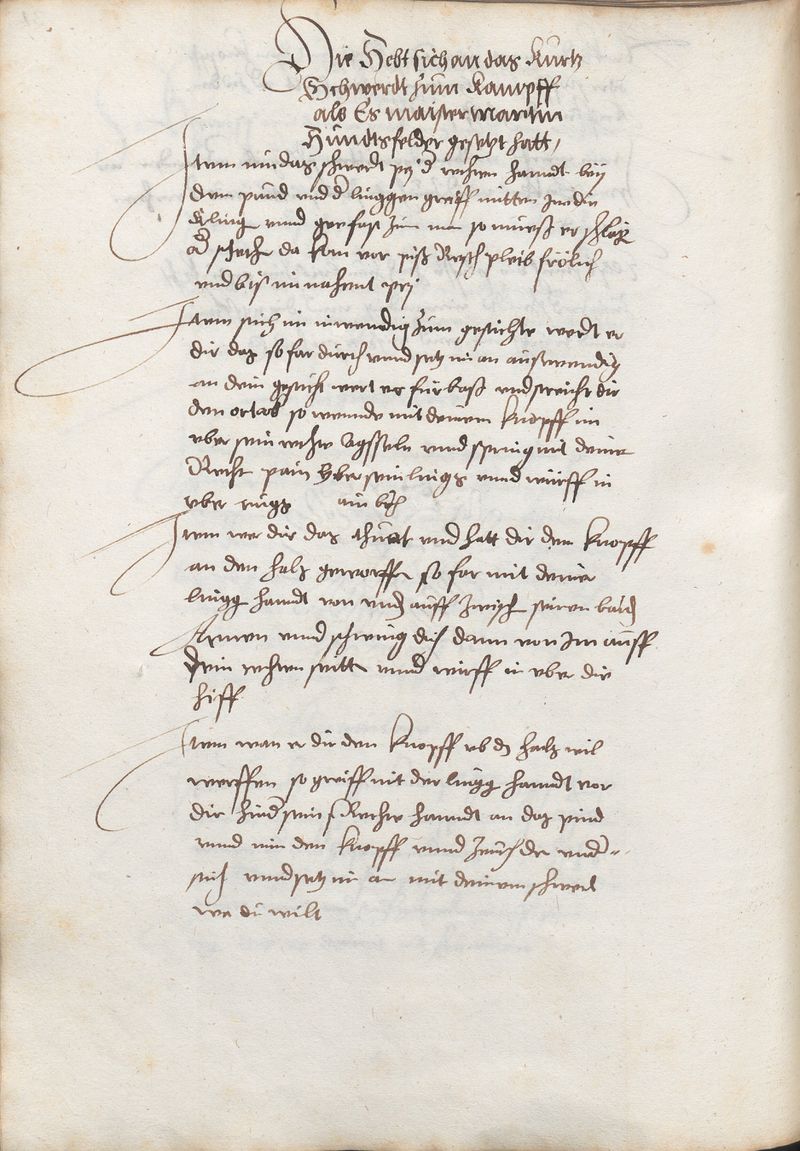 Die Hebt sich an das Kurtz
Schwerdt zum Kampff
als Es maister martin
Hundtsfelder gesetzt hatt,
Item nim das schwert pey d' rechten handt bey
dem pund vnd d' linggen greiff mitten Inn die
kling vnnd far zu im so muess er schlag
od' stechen da kom vor piss Resch pleib frölich
vnd biss im nahent pey
Item stich im inwendig zum gesichte wert er
dir das so far durch vnnd setz im an auswendig
an dem gesicht wert er fürbass vnd streicht dir
den ort ab so wennde mit deinem knopff im
vber sein rechte Agsseln vnnd spring mit deine
Recht pain vber sein lings vnnd würff in
vber rugs ain
Item wer dir das thuet vnd hatt dir den knopff
an den halss geworffe so far mit deiner
lingg handt von vnd' auff zwisch seinen baid
Armen vnnd schwing dich dann von Im auff
dein rechten seitte vnnd würff in vber die
hüff
Item wan er dir den knopff vb den halss wil
werffen so greiff mit der lingg handt vor
dir hinder sein Rechte hanndt an das pind
vnnd nim den knopff vnnd zeuch de vnder
sich vnnd setz im an mit deinem schwert
wa du wilt